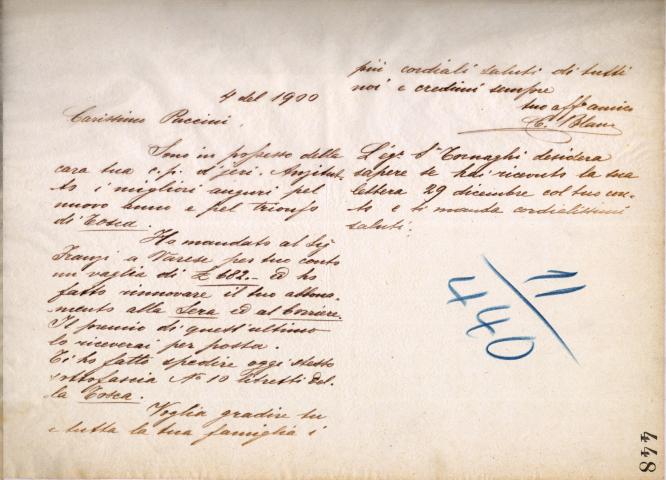 4 del 1900
Carissimo Puccini,
Sono in possesso della
cara tua c.p. d'jeri. Anzitut-
to i migliori auguri pel
nuovo anno e pel trionfo
di Tosca.
Ho mandato al Sig.
Franzi a Varese per tuo conto
un vaglia di £ 682.- ed ho
fatto rinnovare il tuo abbona-
mento alla Sera ed al Corriere.
Il premio di quest'ultimo
lo riceverai per posta.
Ti ho fatto spedire oggi stesso
sottofascia No 10 libretti del-
la Tosca.
Voglia gradire tu
e tutta la tua famiglia i
più cordiali saluti di tutti
noi e credimi sempre
tuo affo amico
C. Blanc
Tornaghi desidera
sapere se hai ricevuto la sua
lettera 29 dicembre col tuo con-
to e ti manda cordialissimi
saluti.
11
440
448